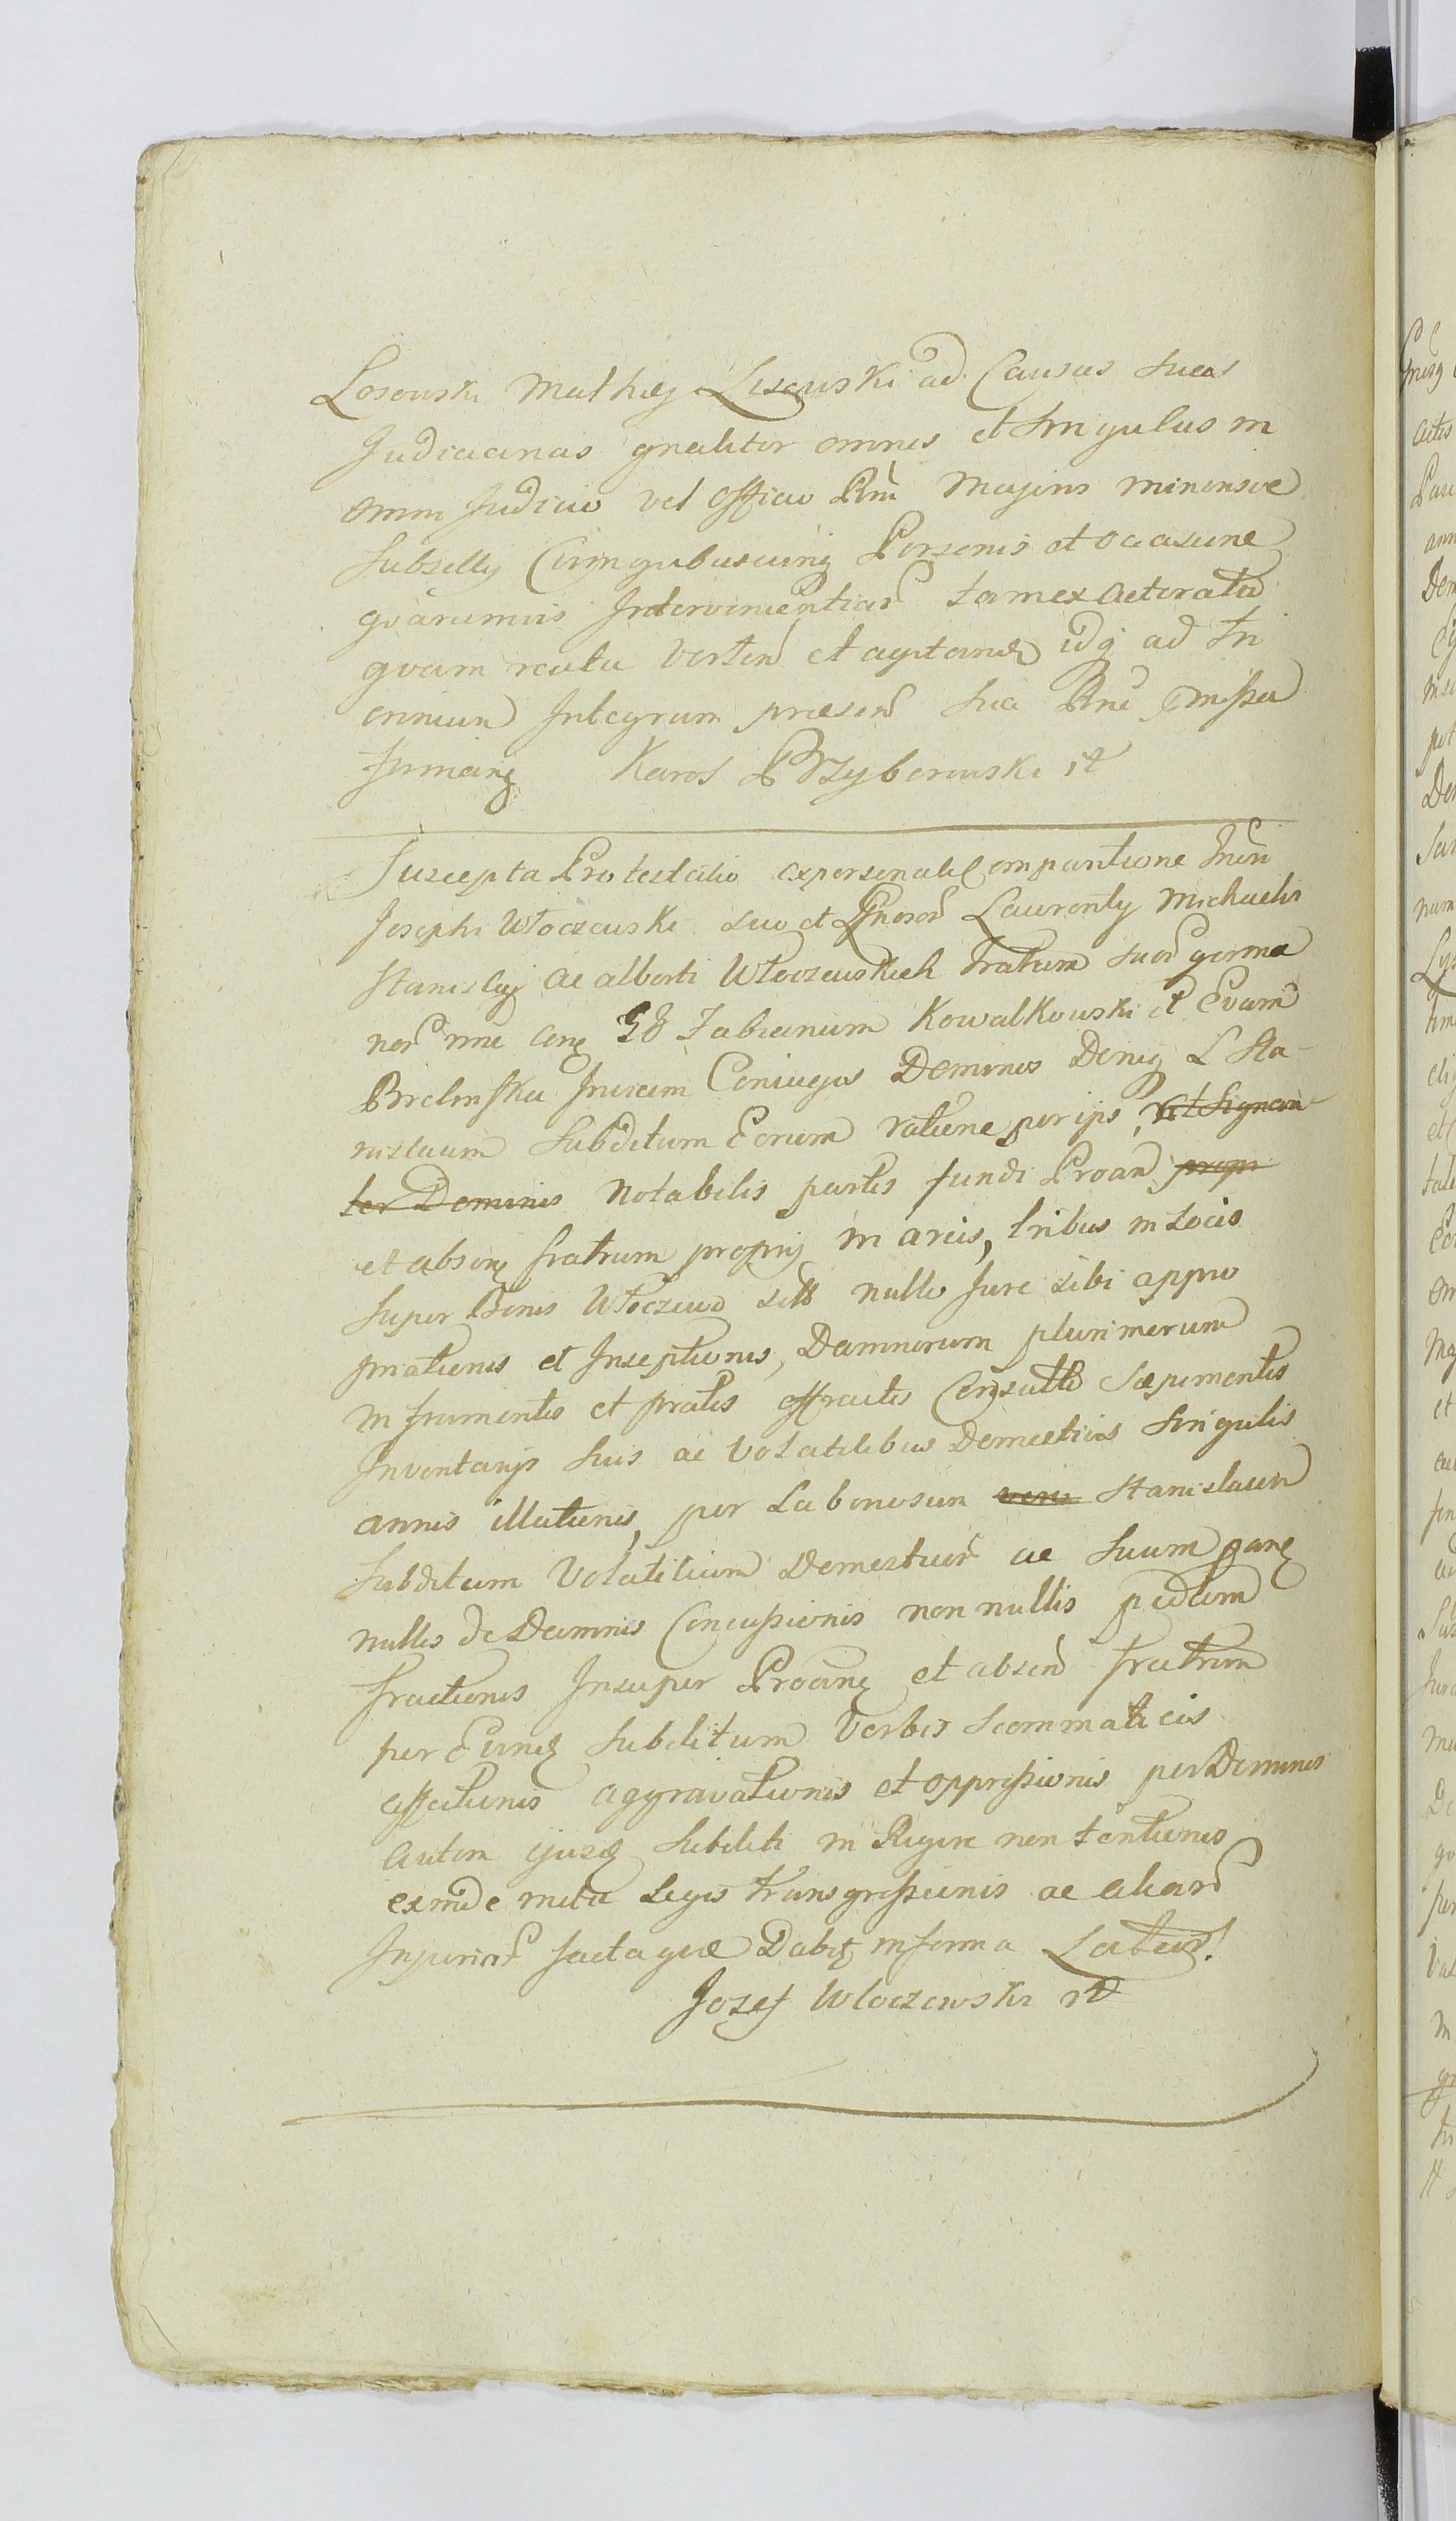 Losowski Mathiej Lisowski ad Causas Suas
Judiciarias gnaliter omnes et Singulas in
omni Judicio vel Officio Rni Majoris minorisve
Subsellij Cumquibuscunq Personis et occasione
qvarumvis Intervenientiar tam ex Actoratu
qvam reatu Verten et agitandas idq ad In
omnium Integrum præsen Sua Rne missa
firmang Karol Przyborowski rt
Suscepta Protestatio expersonali Comparitione Gnero
Josephi Włoczewski suo et Gneror Laurentij Michaelis
Stanislaj ac alberti Włoczewskich fratrum suor germa
nor nne Conq GG Fabianum Kowalkowski et Evam
Bielinska Invicem Coniuges Dominos Denig L Sta-
nislaum Subditum Eorum ratione per ips, et Signan
ter Dominos Notabilis partis fundi Proan prop
et absong fratrum proprij in areis, tribus in Locis
Super Bonis Włoczewo sitt nullo Jure sibi appro
priationis et Inceptionis, Damnorum plurimorum
in frumentis et pratis effractis Consulto Sæpimentis
Inventarijs Suis ac Volatilibus Domesticis Singulis
annis illationis, per Laboriosum Stanislaum
Subditum Volatilium Domesticor ac Suum
nullis de Damnis Concussionis non nullis pedum
fractionis Insuper Proang et absen fratrum
per Eund Subditum Verbis Scommaticis
affectionis aggravationis et oppressionis per Dominos
autem ejusd Subditi in Rigore non tentionis
exinde metu Legis transgressionis ac aliar
Injuriar facta quæ Dabit in forma Latiori.
Jozef Wloczewski rt